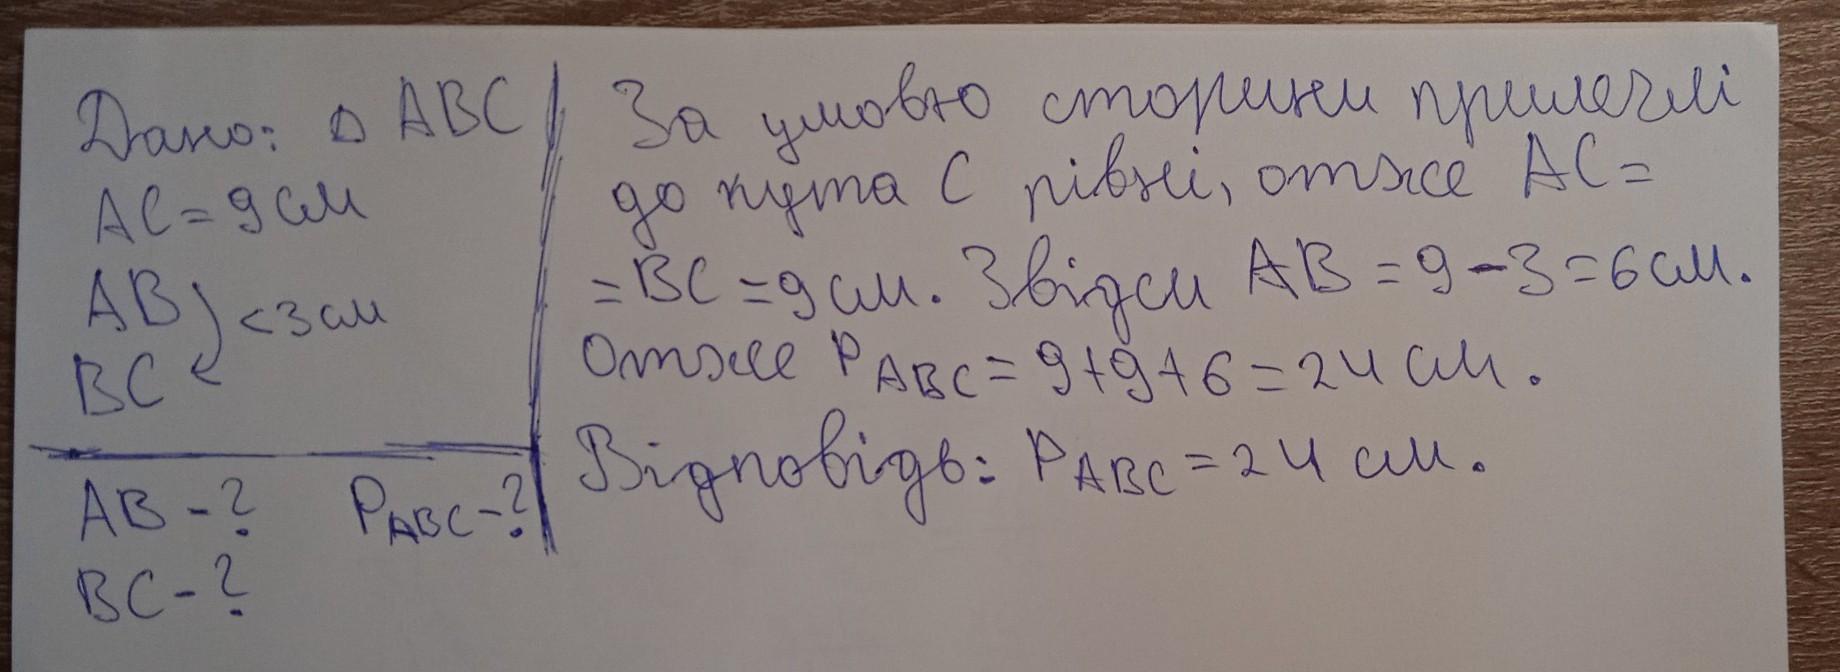 Дано: △ ABC
AC = 9 см
AB
< 3 см
BC
AB - ?
P ABC - ?
BC - ?
За умовою сторини прилеглі
до кута C рівні, отже AC =
= BC = 9 см. Звідси AB = 9 - 3 = 6 см.
Отже P ABC = 9 + 9 + 6 = 24 см.
Відповідь: P ABC = 24 см.